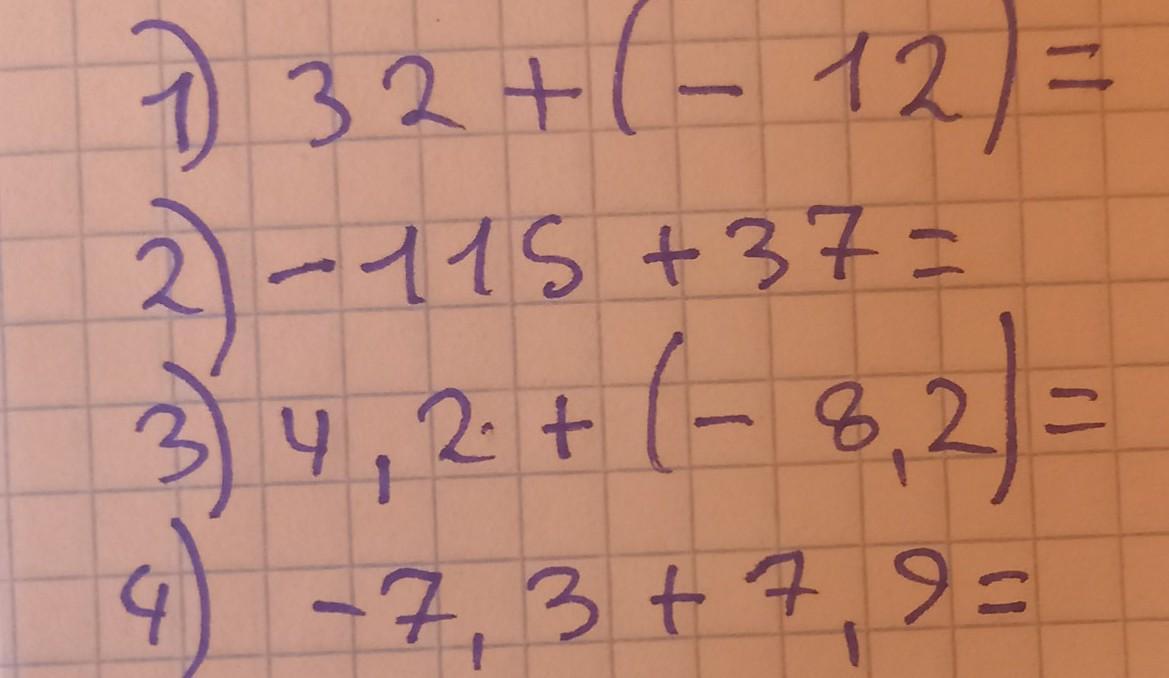 1) 32 + (- 12) =
2) -115 + 37 =
3) 4,2 + (- 8,2) =
4) -7,3 + 7,9 =